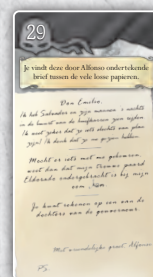 29
Je vindt deze door Alfonso ondertekende
brief tussen de vele losse papieren.
Don Emilio,
Ik heb Salvador en zijn mannen 's nachts
in de buurt van de loodsen zien
Ik weet zeker dat ze iets slechts van plan
zijn! Ik denk dat ze
Mocht er iets met me gebeuren,
weet dan dat mijn trouwe paard
Eldorado ondergebracht is bij mijn
oom
Je kunt rekenen op een van de
dochters van de gouverneur.
Met vriendelijke groet Alfonso
PS.